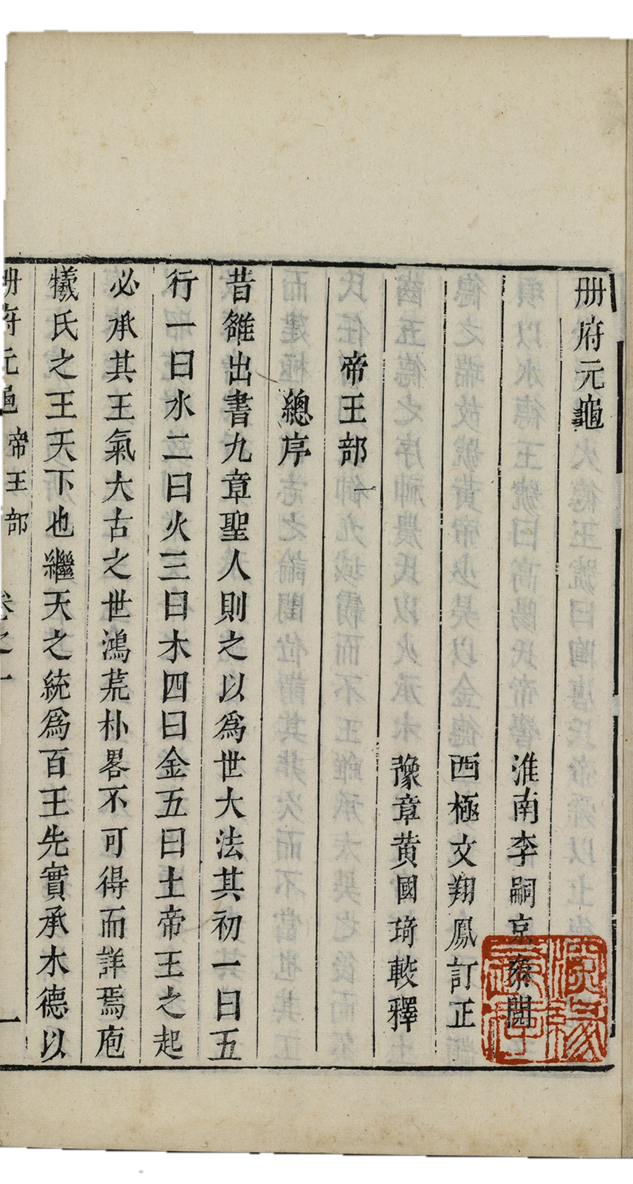 册府元龜
淮南李嗣京參閱
西極文翔鳳訂正
豫章黃國琦較釋
帝王部一
總序
昔雒出書九章聖人則之以爲世大法其初一曰五
行一曰水二曰火三曰木四曰金五曰土帝王之起
必承其王氣大古之世鴻荒朴畧不可得而詳焉庖
犧氏之王天下也繼天之統爲百王先實承木德以
册府元龜 帝王部 卷之一 一